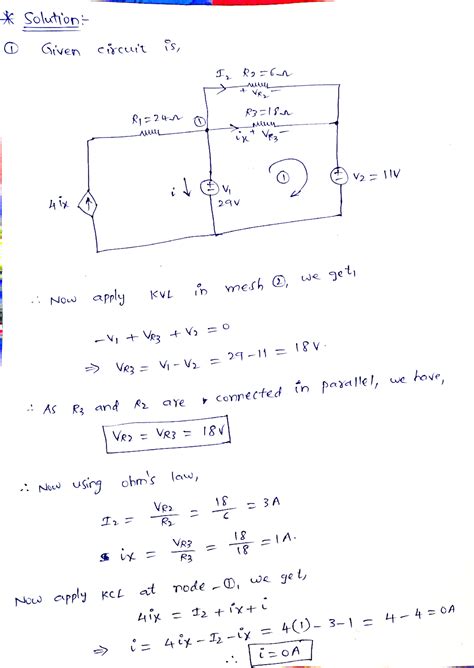 * Solution:-
① Given circuit is,
I₂ R₂=6Ω
+ VR₂ −
R₃=18Ω
R₁=24Ω ①
ix + VR₃ −
4ix
i ↓
V₁
29V
①
V₂ = 11V
∴ Now apply KVL in mesh ②, we get,
−V₁ + VR₃ + V₂ = 0
⇒ VR₃ = V₁−V₂ = 29−11 = 18V.
∴ As R₃ and R₂ are connected in parallel, we have,
VR₂ = VR₃ = 18V
∴ Now using ohm's law,
I₂ = VR₂/R₂ = 18/6 = 3A
ix = VR₃/R₃ = 18/18 = 1A.
Now apply KCL at node-①, we get,
4ix = I₂ + ix + i
⇒ i = 4ix−I₂−ix = 4(1)−3−1 = 4−4 = 0A
∴ i = 0A